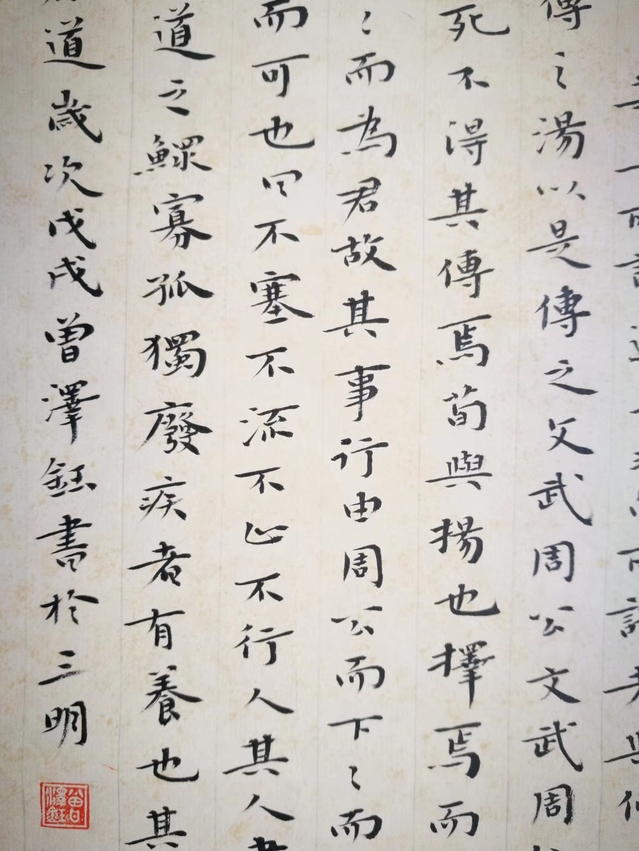 傳之湯以是傳之文武周公文武周
死不得其傳焉荀與揚也擇焉而
〻而為君故其事行由周公而下〻而
而可也曰不塞不流不止不行人其人
道之鰥寡孤獨廢疾者有養也其
道歲次戊戌曾澤鈺書於三明